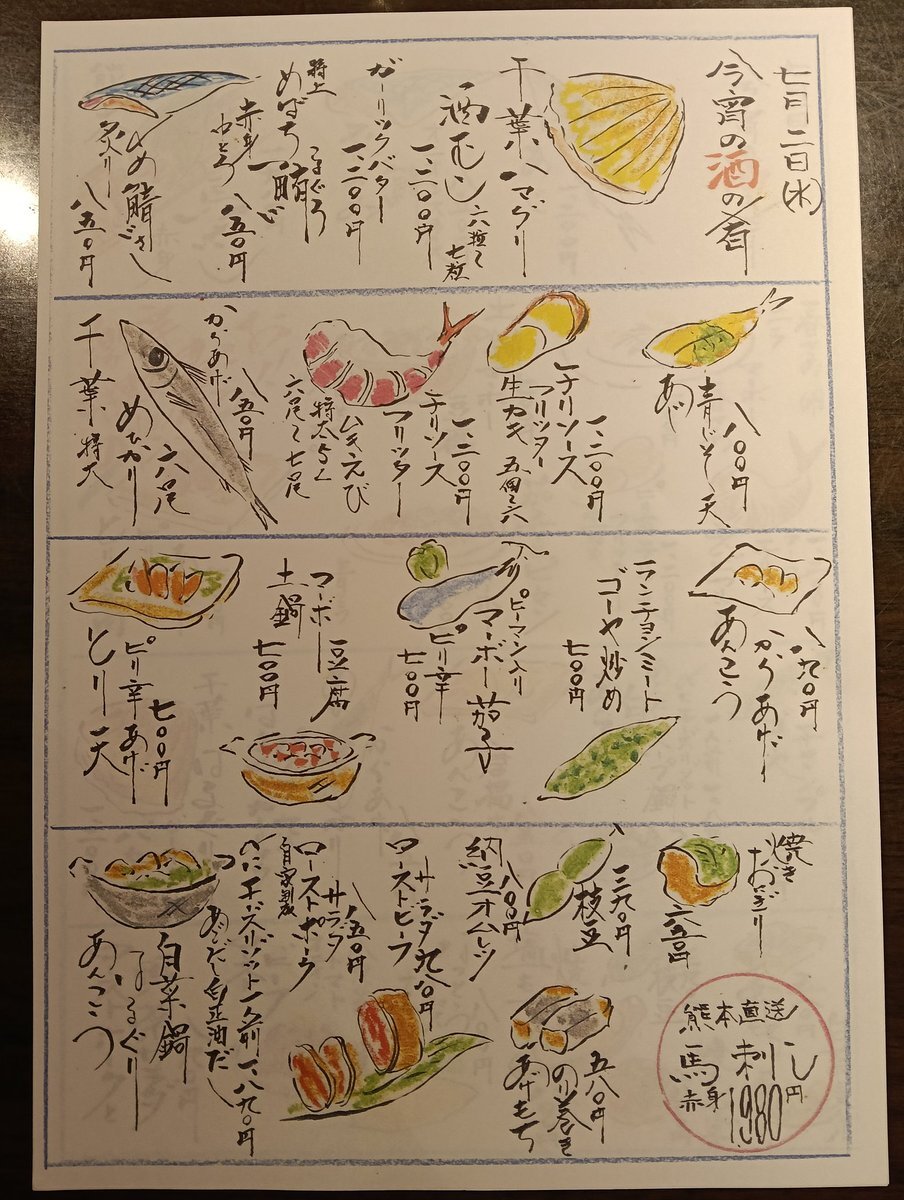 七月二日(水)
今宵の酒の肴
千葉ハマグリ
酒むし 六粒〜七粒
一、二〇〇円
ガーリックバター
一、二〇〇円
特上
めばちまぐろ
赤身
中とろ
八五〇円
しめ鯖さし
炙り
八五〇円
青じそ天
あじ
八〇〇円
チリソース
フリッター
一、二〇〇円
生カキ
チリソース
フリッター
一、二〇〇円
ムキえび
特大
六尾〜七尾
からあげ
八五〇円
めひかり
六尾
千葉 特大
あんこう
からあげ
八九〇円
ランチョンミート
ゴーヤ炒め
七〇〇円
ピーマン入り
マーボー茄子
ピリ辛
七〇〇円
マーボー豆腐
土鍋
七〇〇円
ピリ辛あげ
とり天
七〇〇円
焼き
おにぎり
二五〇円
枝豆
三九〇円
納豆オムレツ
八〇〇円
サラダ 九八〇円
ローストビーフ
サラダ
八五〇円
ローストポーク
自家製
かにチーズリゾット一人前 一、八九〇円
白菜鍋
あんこう
のり巻き
あげもち
五八〇円
熊本直送
馬刺し
赤身 1980円